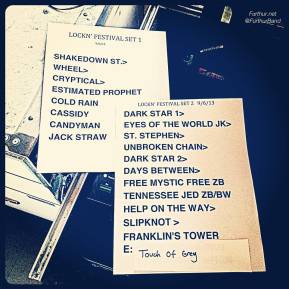 Furthur.net
@FurthurBand
LOCKN' FESTIVAL SET 1
SHAKEDOWN ST.>
WHEEL>
CRYPTICAL>
ESTIMATED PROPHET
COLD RAIN
CASSIDY
CANDYMAN
JACK STRAW
LOCKN' FESTIVAL SET 2 9/6/13
DARK STAR 1>
EYES OF THE WORLD JK>
ST. STEPHEN>
UNBROKEN CHAIN>
DARK STAR 2>
DAYS BETWEEN>
FREE MYSTIC FREE ZB
TENNESSEE JED ZB/BW
HELP ON THE WAY>
SLIPKNOT >
FRANKLIN'S TOWER
E: Touch Of Grey